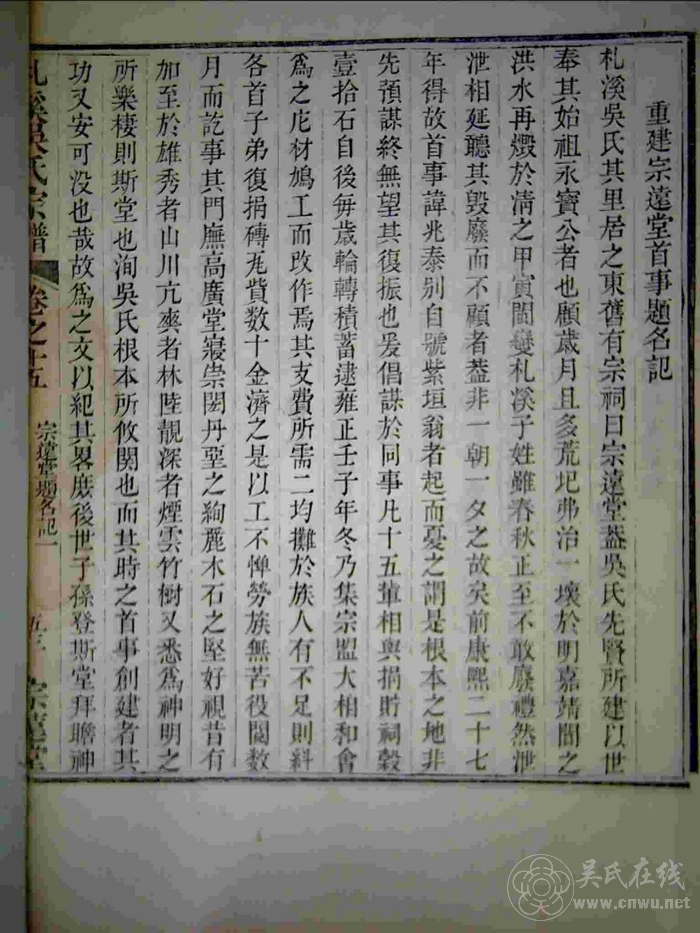 重建宗遠堂首事題名記
札溪吳氏其里居之東舊有宗祠曰宗遠堂葢吳氏先賢所建以世
奉其始祖永寶公者也顧歲月且多荒圮弗治一壞於明嘉靖間之
洪水再燬於淸之甲寅閩變札溪子姓雖春秋正至不敢廢禮然泄
泄相延聽其毀廢而不顧者葢非一朝一夕之故矣前康熙二十七
年得故首事諱兆泰别自號紫垣翁者起而憂之謂是根本之地非
先預謀終無望其復振也爰倡謀於同事凡十五輩相與捐貯祠穀
壹拾石自後每歲輪轉積蓄逮雍正壬子年冬乃集宗盟大相和會
爲之庀材鳩工而改作焉其支費所需二均攤於族人有不足則糾
各首子弟復捐磚瓦貲数十金濟之是以工不憚勞族無苦役閱数
月而訖事其門廡高廣堂寢崇閎丹堊之絢麗木石之堅好視昔有
加至於雄秀者山川亢爽者林陸靚深者煙雲竹樹又悉爲神明之
所樂棲則斯堂也洵吳氏根本所攸関也而其時之首事創建者其
功又安可没也哉故爲之文以紀其畧庶後世子孫登斯堂拜瞻神
札溪吳氏宗譜 卷之十五 宗遠堂題名記一 五三 宗遠堂
吴氏在线
www.cnwu.net